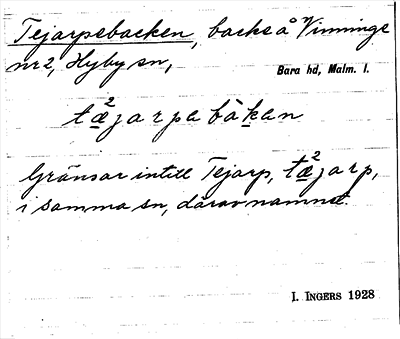 Tejarpsbacken, backe å Vinninge
nr 2, Hyby sn,
Bara hd, Malm. l.
tæ²jarpsbàkan
Gränsar intill Tejarp, tæ²jarp,
i samma sn, därav namnet.
I. INGERS 1928